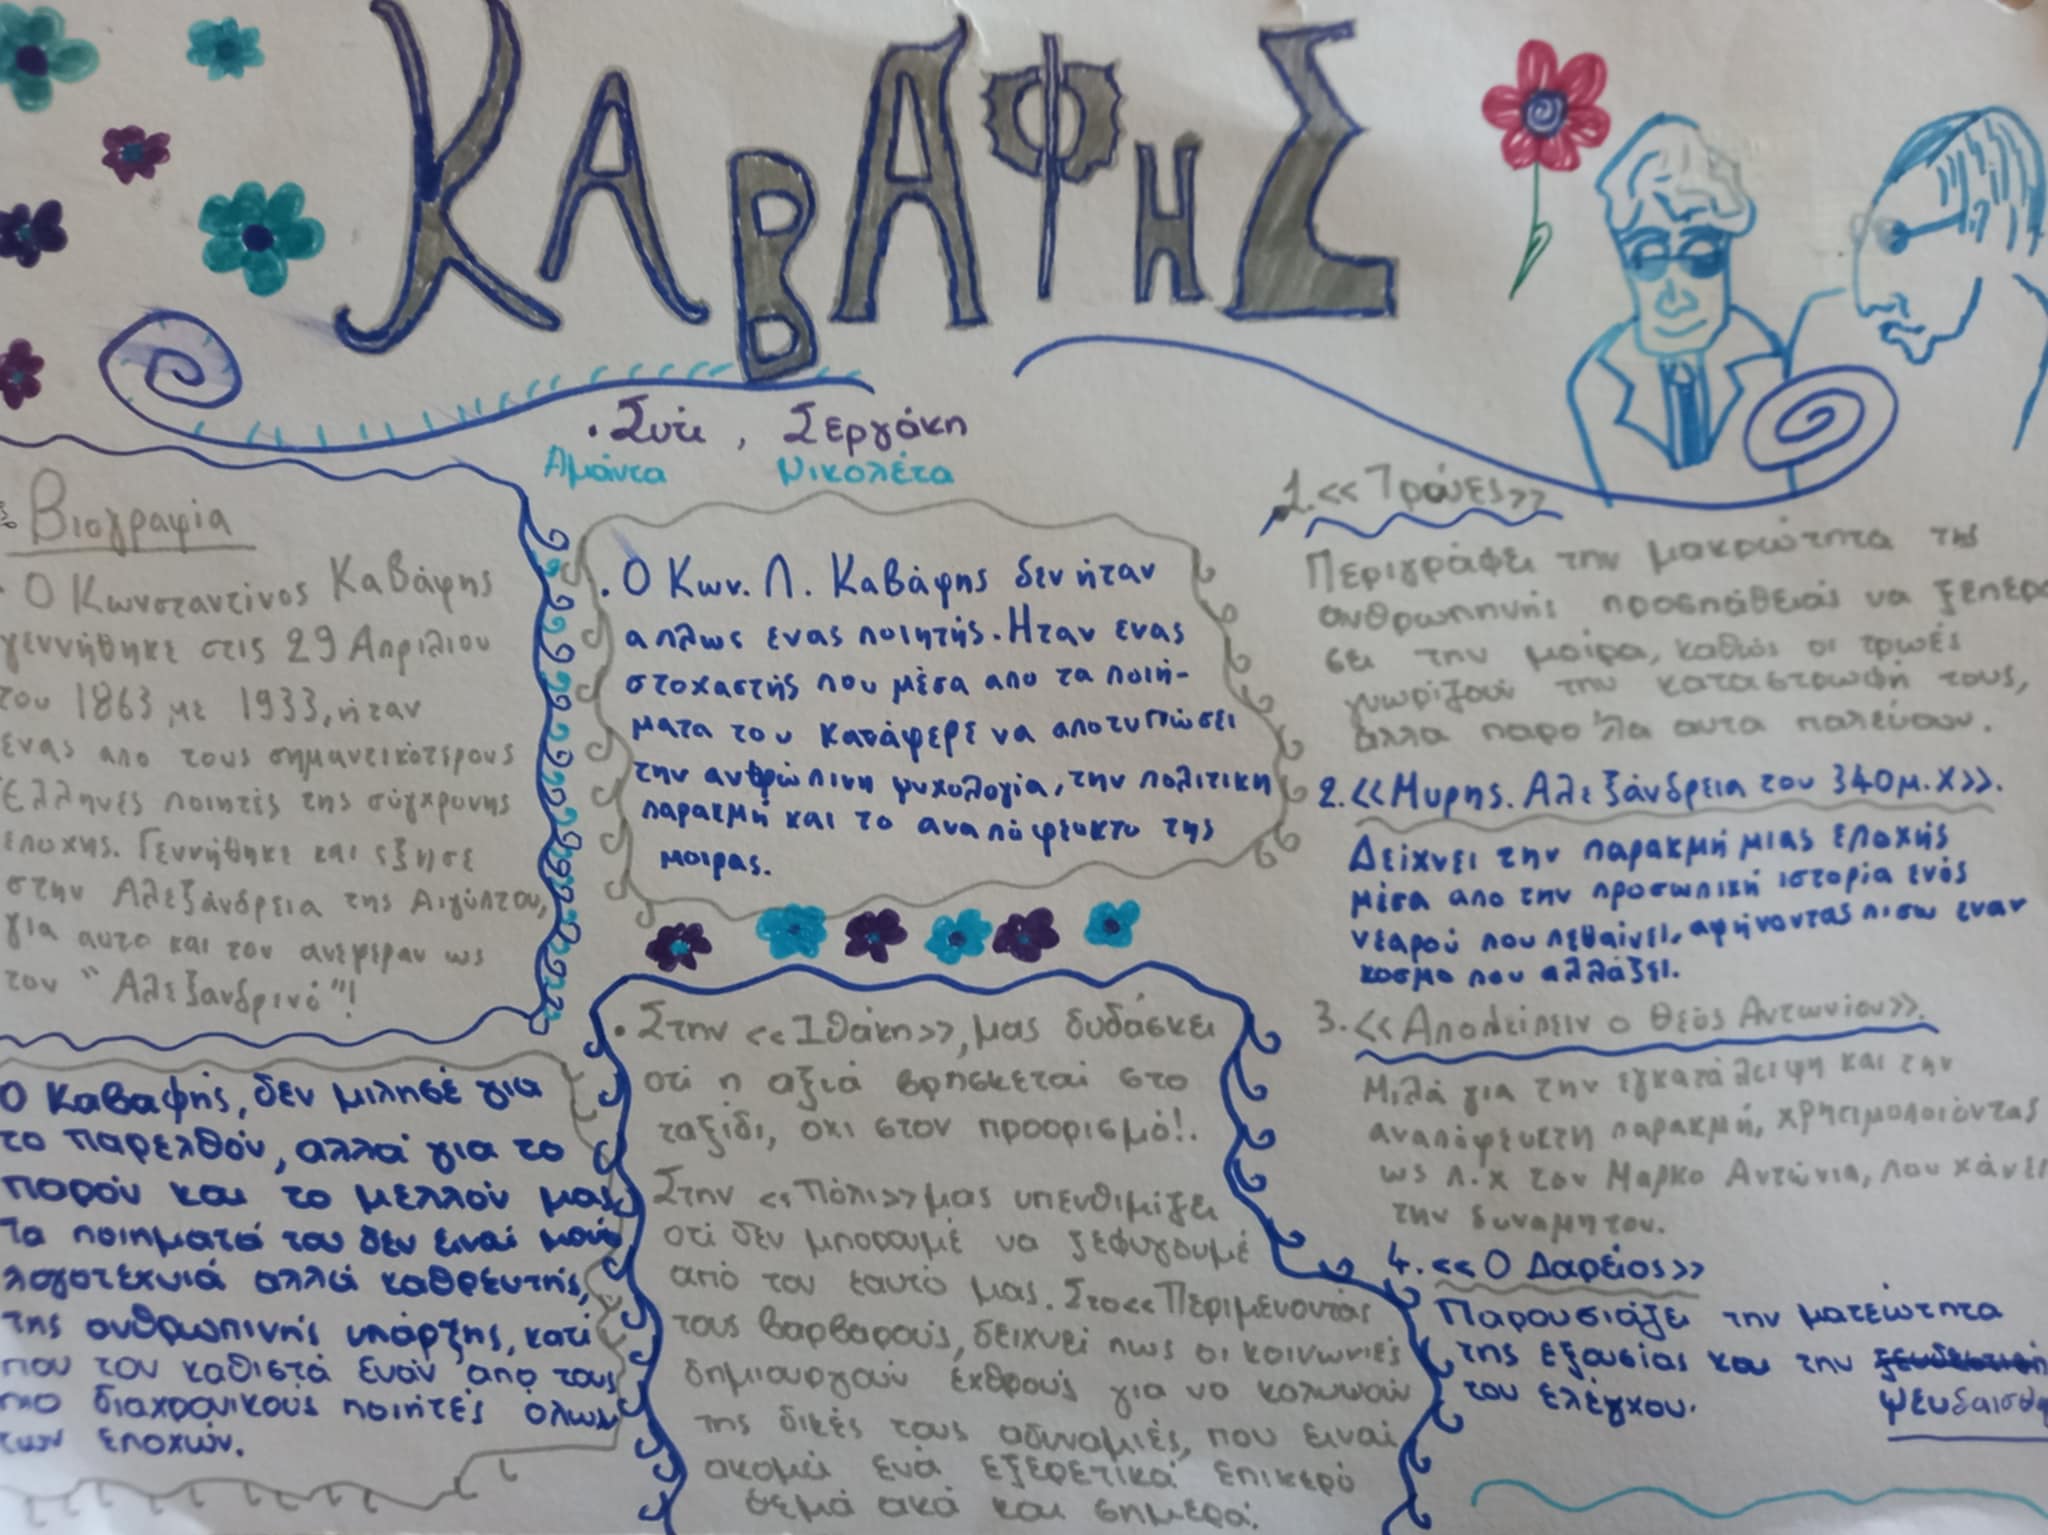 ΚΑΒΑΦΗΣ
• Συτι , Σεργάκη
Αμάντα Νικολέτα
Βιογραφία
• Ο Κωνσταντίνος Καβάφης
γεννήθηκε στις 29 Απριλιου
του 1863 με 1933, ήταν
ένας απο τους σημαντικότερους
Έλληνες ποιητές της σύγχρονης
εποχης. Γεννήθηκε και εζησε
στην Αλεξάνδρεια της Αιγύπτου,
για αυτο και τον ανεφεραν ως
τον "Αλεξανδρινό"!
Ο Καβαφής, δεν μιλησέ για
το παρελθόν, αλλά για το
παρόν και το μελλόν μας
Τα ποιηματά του δεν ειναί μονο
λογοτεχνιά αλλά καθρευτής,
της ανθρωπινής υπάρξης, κατί
που τον καθιστά ενάν απο τους
πιο διαχρονικούς ποιητές ολων
των εποχών.
• Ο Κων. Π. Καβάφης δεν ήταν
απλως ενας ποιητής. Ηταν ενας
στοχαστής που μέσα απο τα ποιή-
ματα του κατάφερε να αποτυπώσει
την ανθρώπινη ψυχολογία, την πολιτικη
παρατμή και το αναπόφευκτο της
μοιρας.
• Στην <<Ιθάκη>>, μας δυδάσκει
οτί η αξιά βρησκεταί στο
ταξίδι, οχι στον προορισμό!.
Στην <<Πόλι>> μας υπενθιμίζει
οτί δεν μπορουμέ να ξεφυγουμέ
από τον εαυτό μας. Στο<<Περιμενοντάς
τους βαρβαρούς, δειχνει πως οι κοινωνιές
δημιουργούν εχθρούς για να καλυψούν
της δικές τους αδυναμιές, που ειναί
ακομά ενά εξερετικά επικερό
θεμά ακά και σημερά.
1. <<Τρώες>>
Περιγράφει την μακρώτητα της
ανθρωπηνής προσπάθειάς να ξεπερα
σει την μοίρα, καθώς οι τρωές
γνωρίζουν την καταστρωφή τους,
άλλα παρο'λα αυτα παλεύουν.
2. <<Μυρης. Αλεξάνδρεια του 340 μ.Χ>>.
Δείχνει την παρακμή μιας εποχής
μέσα απο την προσωπική ιστορία ενός
νεαρού που πεθαίνει, αφήνοντας πισω εναν
κοσμο που αλλάζει.
3. <<Απολείπειν ο θεός Αντωνίου>>.
Μιλά για την εγκατάλειψη και την
αναπόφευκτη παρακμή, χρησιμοποιόντας
ως π.χ τον Μαρκο Αντώνια, που χάνει
την δυναμη του.
4. <<Ο Δαρείος>>
Παρουσιάζει την ματεώτητα
της εξουσίας και την
του ελέγχου. ψευδαισθη